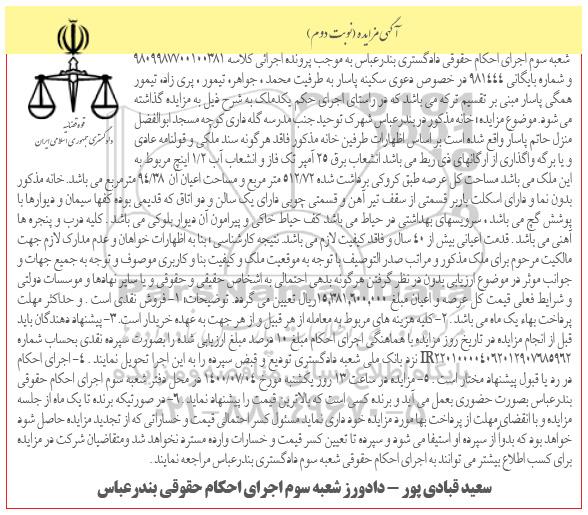 آگهی مزایده (نوبت دوم)
قوه قضائیه
دادگستری جمهوری اسلامی ایران
شعبه سوم اجرای احکام حقوقی دادگستری بندرعباس به موجب پرونده اجرائی کلاسه ۹۸۰۹۹۸۷۷۰۰۱۰۰۳۸۱
و شماره بایگانی ۹۸۱۴۴۴ در خصوص دعوی سکینه پاسار به طرفیت محمد ، جواهر، تیمور ، پری زاد، تیمور
همگی پاسار مبنی بر تقسیم ترکه می باشد که در راستای اجرای حکم یکدملک به شرح ذیل به مزایده گذاشته
می شود. موضوع مزایده؛ خانه مذکور در بندرعباس شهرک توحید جنب مدرسه گله داری کوچه مسجد ابوالفضل
منزل حاتم پاسار واقع شده است بر اساس اظهارات طرفین خانه مذکور فاقد هرگونه سند ملکی و قولنامه عادی
و یا برگه واگذاری از ارگانهای ذی ربط می باشد انشعاب برق ۲۵ آمپر تک فاز و انشعاب آب ۱/۲ اینچ مربوط به
این ملک می باشد مساحت کل عرصه طبق کروکی برداشت شده ۵۱۲/۷۲ متر مربع و مساحت اعیان آن ۹۴/۳۸ مترمربع می باشد. خانه مذکور
بدون نما و دارای اسکلت باربر قسمتی از سقف تیر آهن و قسمتی چوبی دارای یک سالن و دو اتاق که قدیمی بوده کفها سیمان و دیوارها با
پوشش گچ می باشد ، سرویسهای بهداشتی در حیاط می باشد کف حیاط خاکی و پیرامون آن دیوار بلوکی می باشد . کلیه درب و پنجره ها
آهنی می باشد . قدمت اعیانی بیش از ۴۰ سال و فاقد کیفیت لازم می باشد. نتیجه کارشناسی ؛ بنا به اظهارات خواهان و عدم مدارک لازم جهت
مالکیت مرحوم برای ملک مذکور و مراتب صدر التوصیف با توجه به موقعیت ملک و کیفیت بنا و کاربری موصوف و توجه به جمیع جهات و
جوانب موثر در موضوع ارزیابی بدون در نظر گرفتن هرگونه بدهی احتمالی به اشخاص حقیقی و حقوقی و یا سایر نهادها و موسسات دولتی
و شرایط فعلی قیمت کل عرصه و اعیان مبلغ ۱۵,۳۸۱,۶۰۰,۰۰۰ریال تعیین می گردد. توضیحات: ۱- فروش نقدی است . و حداکثر مهلت
پرداخت بهاء یک ماه می باشد . ۲- کلیه هزینه های مربوط به معامله از هر قبیل و از هر جهت به عهده خریدار است. ۳- پیشنهاد دهندگان باید
قبل از انجام مزایده در تاریخ روز مزایده با هماهنگی اجرای احکام مبلغ ۱۰ درصد مبلغ ارزیابی شده را بصورت سپرده نقدی بحساب شماره
نزد بانک ملی شعبه دادگستری تودیع و قبض سپرده را به این اجرا تحویل نمایند . ۴- اجرای احکام
در رد یا قبول پیشنهاد مختار است . ۵- مزایده در ساعت ۱۳ روز یکشنبه مورخ ۱۴۰۰/۰۷/۰۴ در محل دفتر شعبه سوم اجرای احکام حقوقی
بندرعباس بصورت حضوری بعمل می آید و برنده کسی است که بالاترین قیمت را پیشنهاد نماید . ۶- در صورتیکه برنده تا یک ماه از جلسه
مزایده و با انقضای مهلت از پرداخت بها مورد مزایده خود داری نماید مسئول کسر احتمالی قیمت و خساراتی که از تجدید مزایده حاصل شود
خواهد بود که بدواً از سپرده او استیفا می شود و سپرده تا تعیین کسر قیمت و خسارات وارده مسترد نخواهد شد و متقاضیان شرکت در مزایده
برای کسب اطلاع بیشتر می توانند به اجرای احکام حقوقی شعبه سوم دادگستری بندرعباس مراجعه نمایند .
سعید قبادی پور – دادورز شعبه سوم اجرای احکام حقوقی بندرعباس